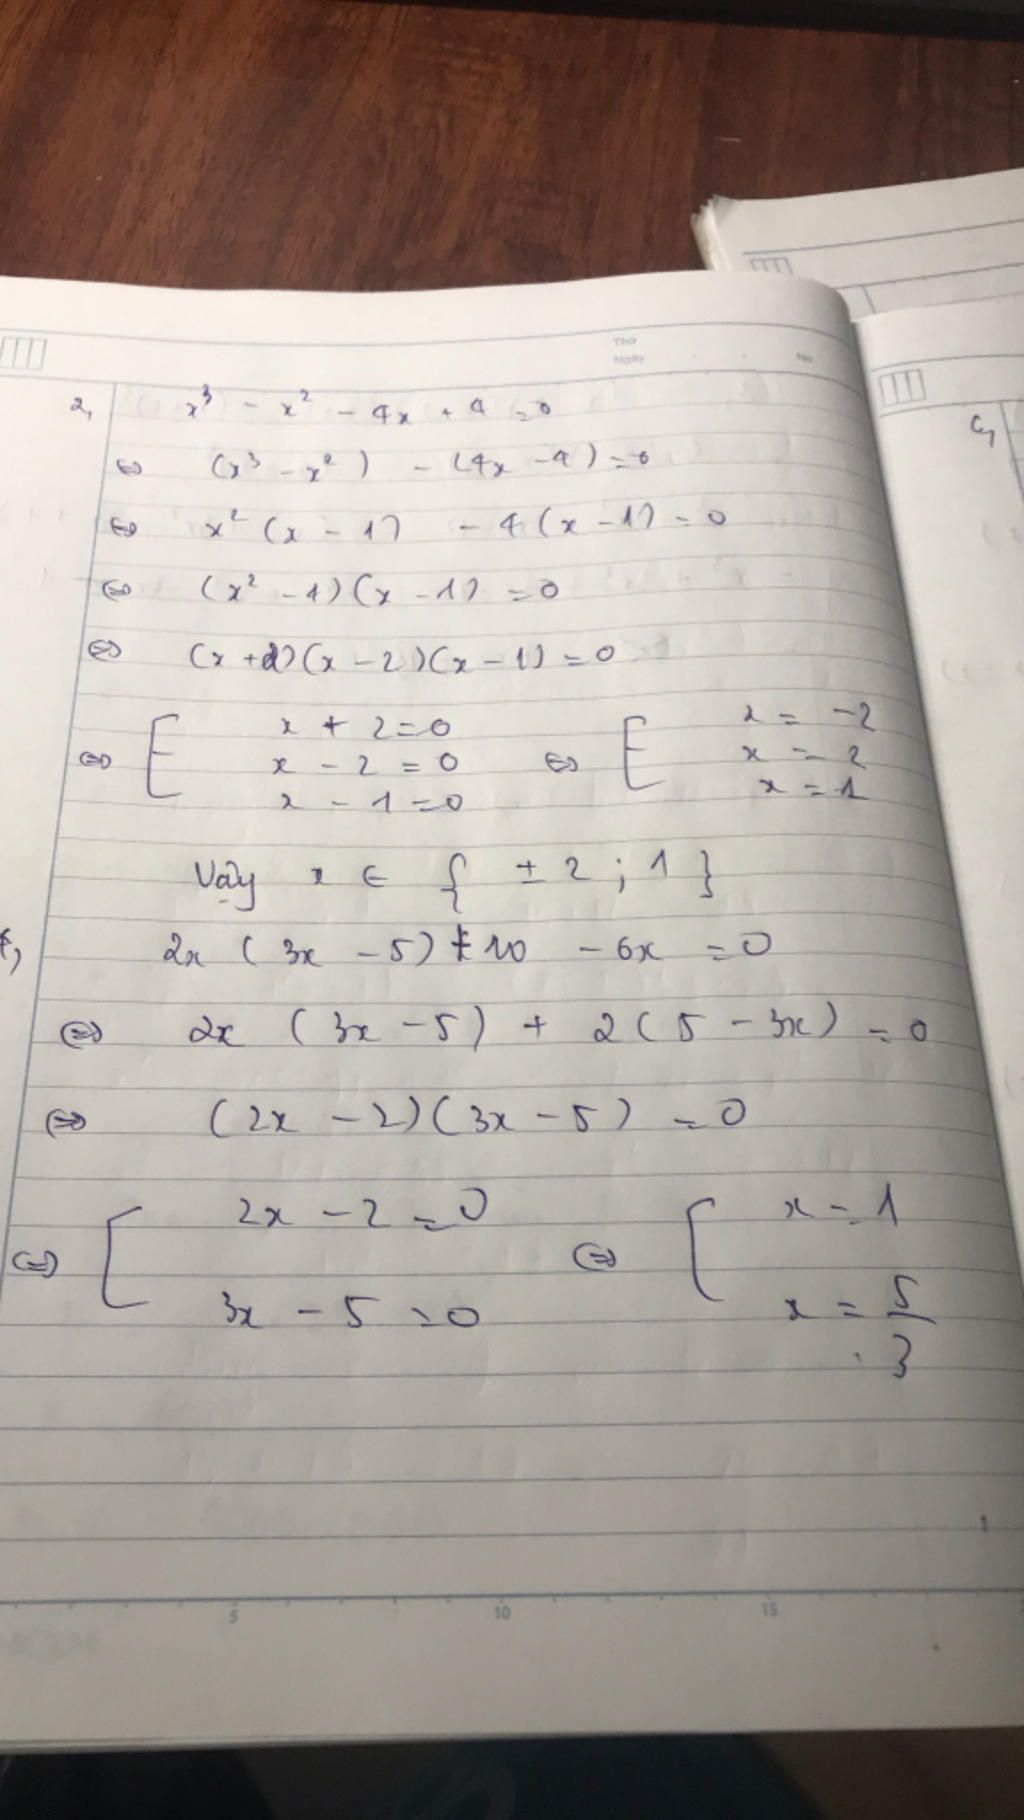 Thứ
Ngày No
2, x³ - x² - 4x + 4 = 0
⇔ (x³ - x²) - (4x - 4) = 0
⇔ x² (x - 1) - 4 (x - 1) = 0
⇔ (x² - 4)(x - 1) = 0
⇔ (x + 2)(x - 2)(x - 1) = 0
⇔ [ x + 2 = 0 ⇔ [ x = -2
x - 2 = 0 x = 2
x - 1 = 0 x = 1
Vậy x ∈ { ± 2 ; 1 }
2x ( 3x - 5) + 10 - 6x = 0
⇔ 2x ( 3x - 5) + 2 ( 5 - 3x) = 0
⇔ (2x - 2)(3x - 5) = 0
⇔ [ 2x - 2 = 0 ⇔ [ x = 1
3x - 5 = 0 x = 5/3
5 10 15